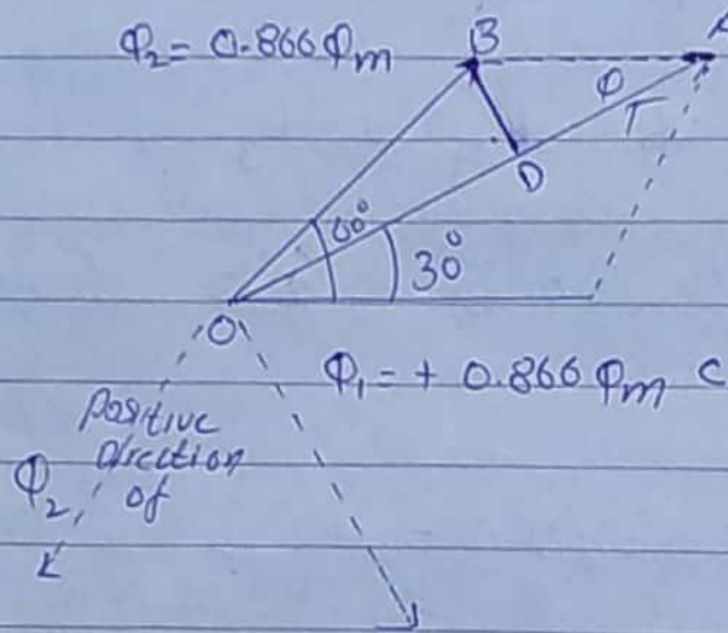 Φ₂ = 0.866 Φm
B
A
Φ
T
D
60°
30°
O
Φ₁ = + 0.866 Φm C
Positive
Direction
Φ₂ of